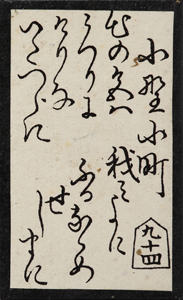 小野小町
花の色ハ
うつりに
けりな
いたつらに
我みよに
ふるなかめ
せ
しまに
九十四